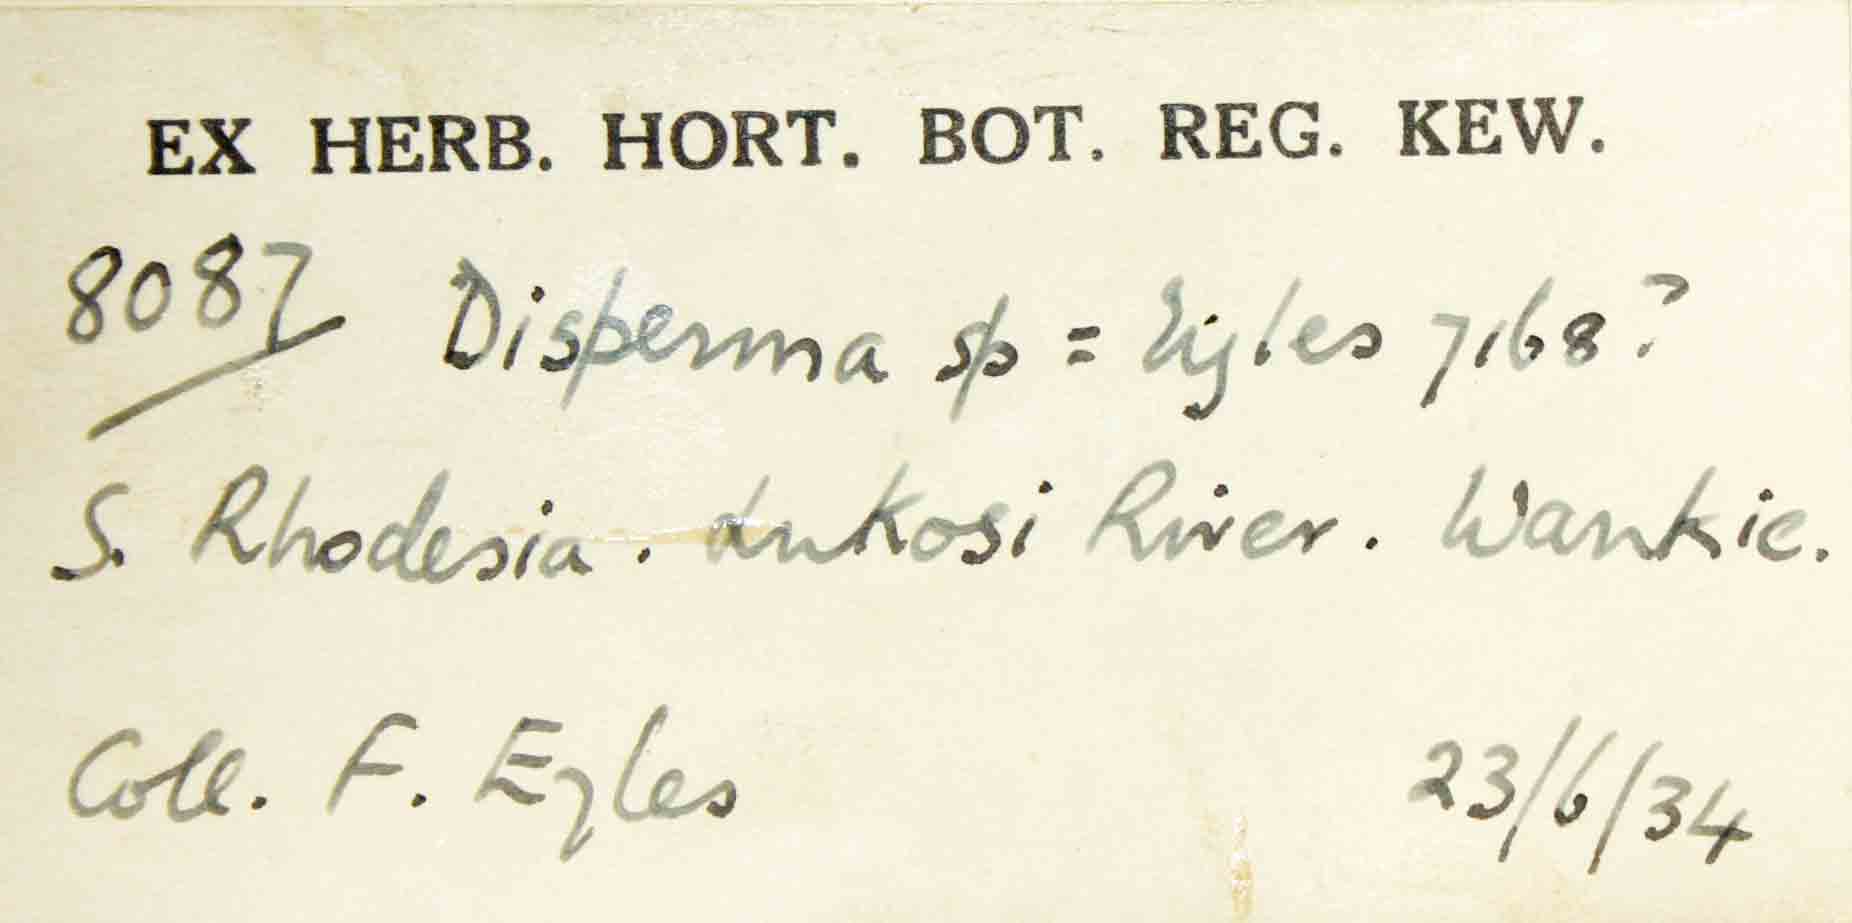 EX HERB. HORT. BOT. REG. KEW.
8087 Disperma sp = Eyles 7168?
S. Rhodesia. Lukosi River. Wankie.
Coll. F. Eyles 23/6/34